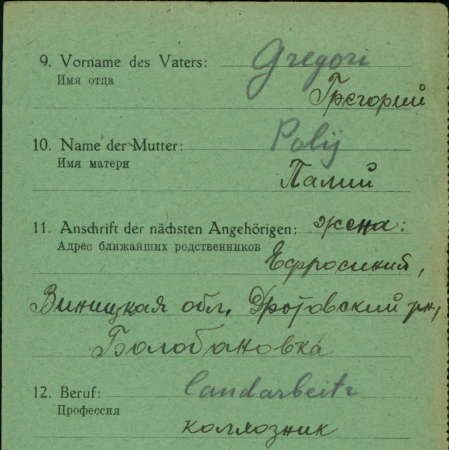 9. Vorname des Vaters: Gregori
Имя отца Грегорий
10. Name der Mutter: Polij
Имя матери Палий
11. Anschrift der nächsten Angehörigen: жена:
Адрес ближайших родственников Ефросиний,
Виницкая обл. Дротовский рн,
Болобановка
12. Beruf: Landarbeitr
Профессия колхозник